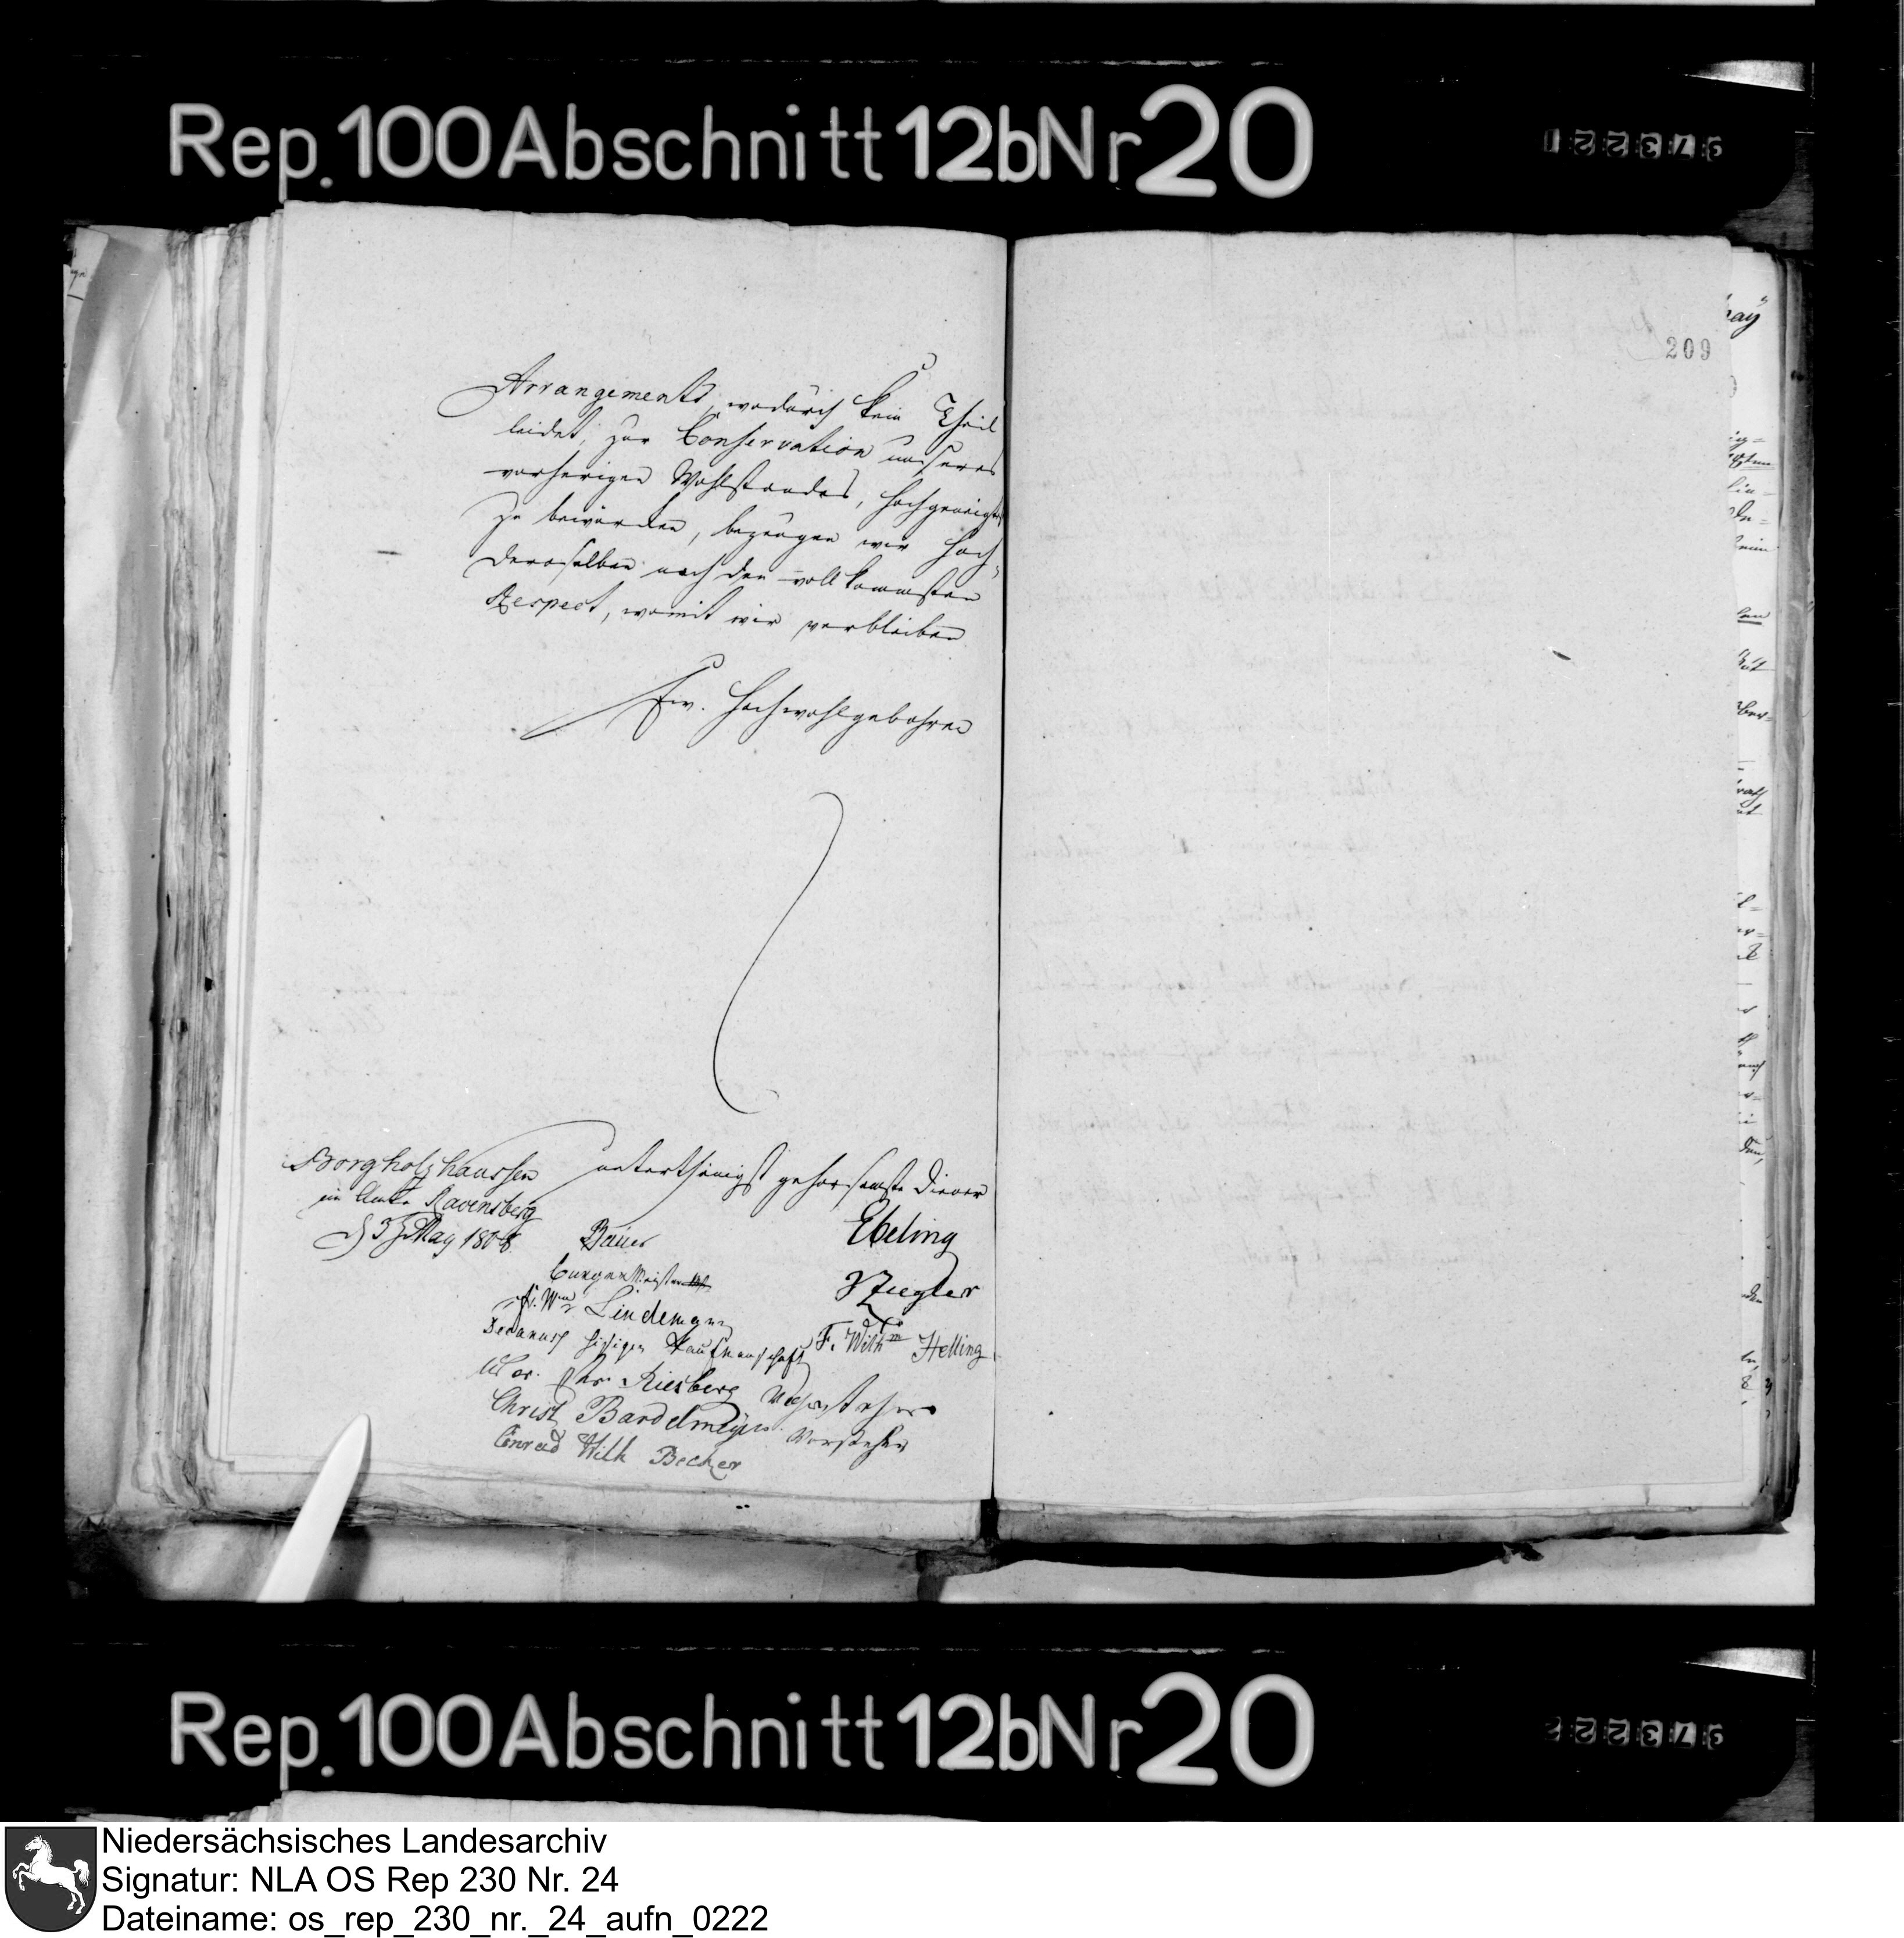 Rep. 100 Abschnitt 12b Nr 20
973221
209
Arrangements, wodurch kein Theil
leidet, zur Conservation unseres
vorherigen Wohlstandes, hochgeneigtest
zu bewürken, bezeugen wir Hoch-
denenselben noch den vollkommsten
Respect, womit wir verbleiben
Ew. Hochwohlgebohren
Borgholzhaussen
im Amte Ravensberg
d 3 May 1808
unterthänigst gehorsamste Diener
Ebeling
Ziegler
Lindemann
hisiger Kaufmanschaft
F. Wilhm Helling
Riesberg Vorsteher
Christ Bardelmeyer Vorsteher
Conrad Wilh Becker
Rep. 100 Abschnitt 12b Nr 20
973222
Niedersächsisches Landesarchiv
Signatur: NLA OS Rep 230 Nr. 24
Dateiname: os_rep_230_nr._24_aufn_0222